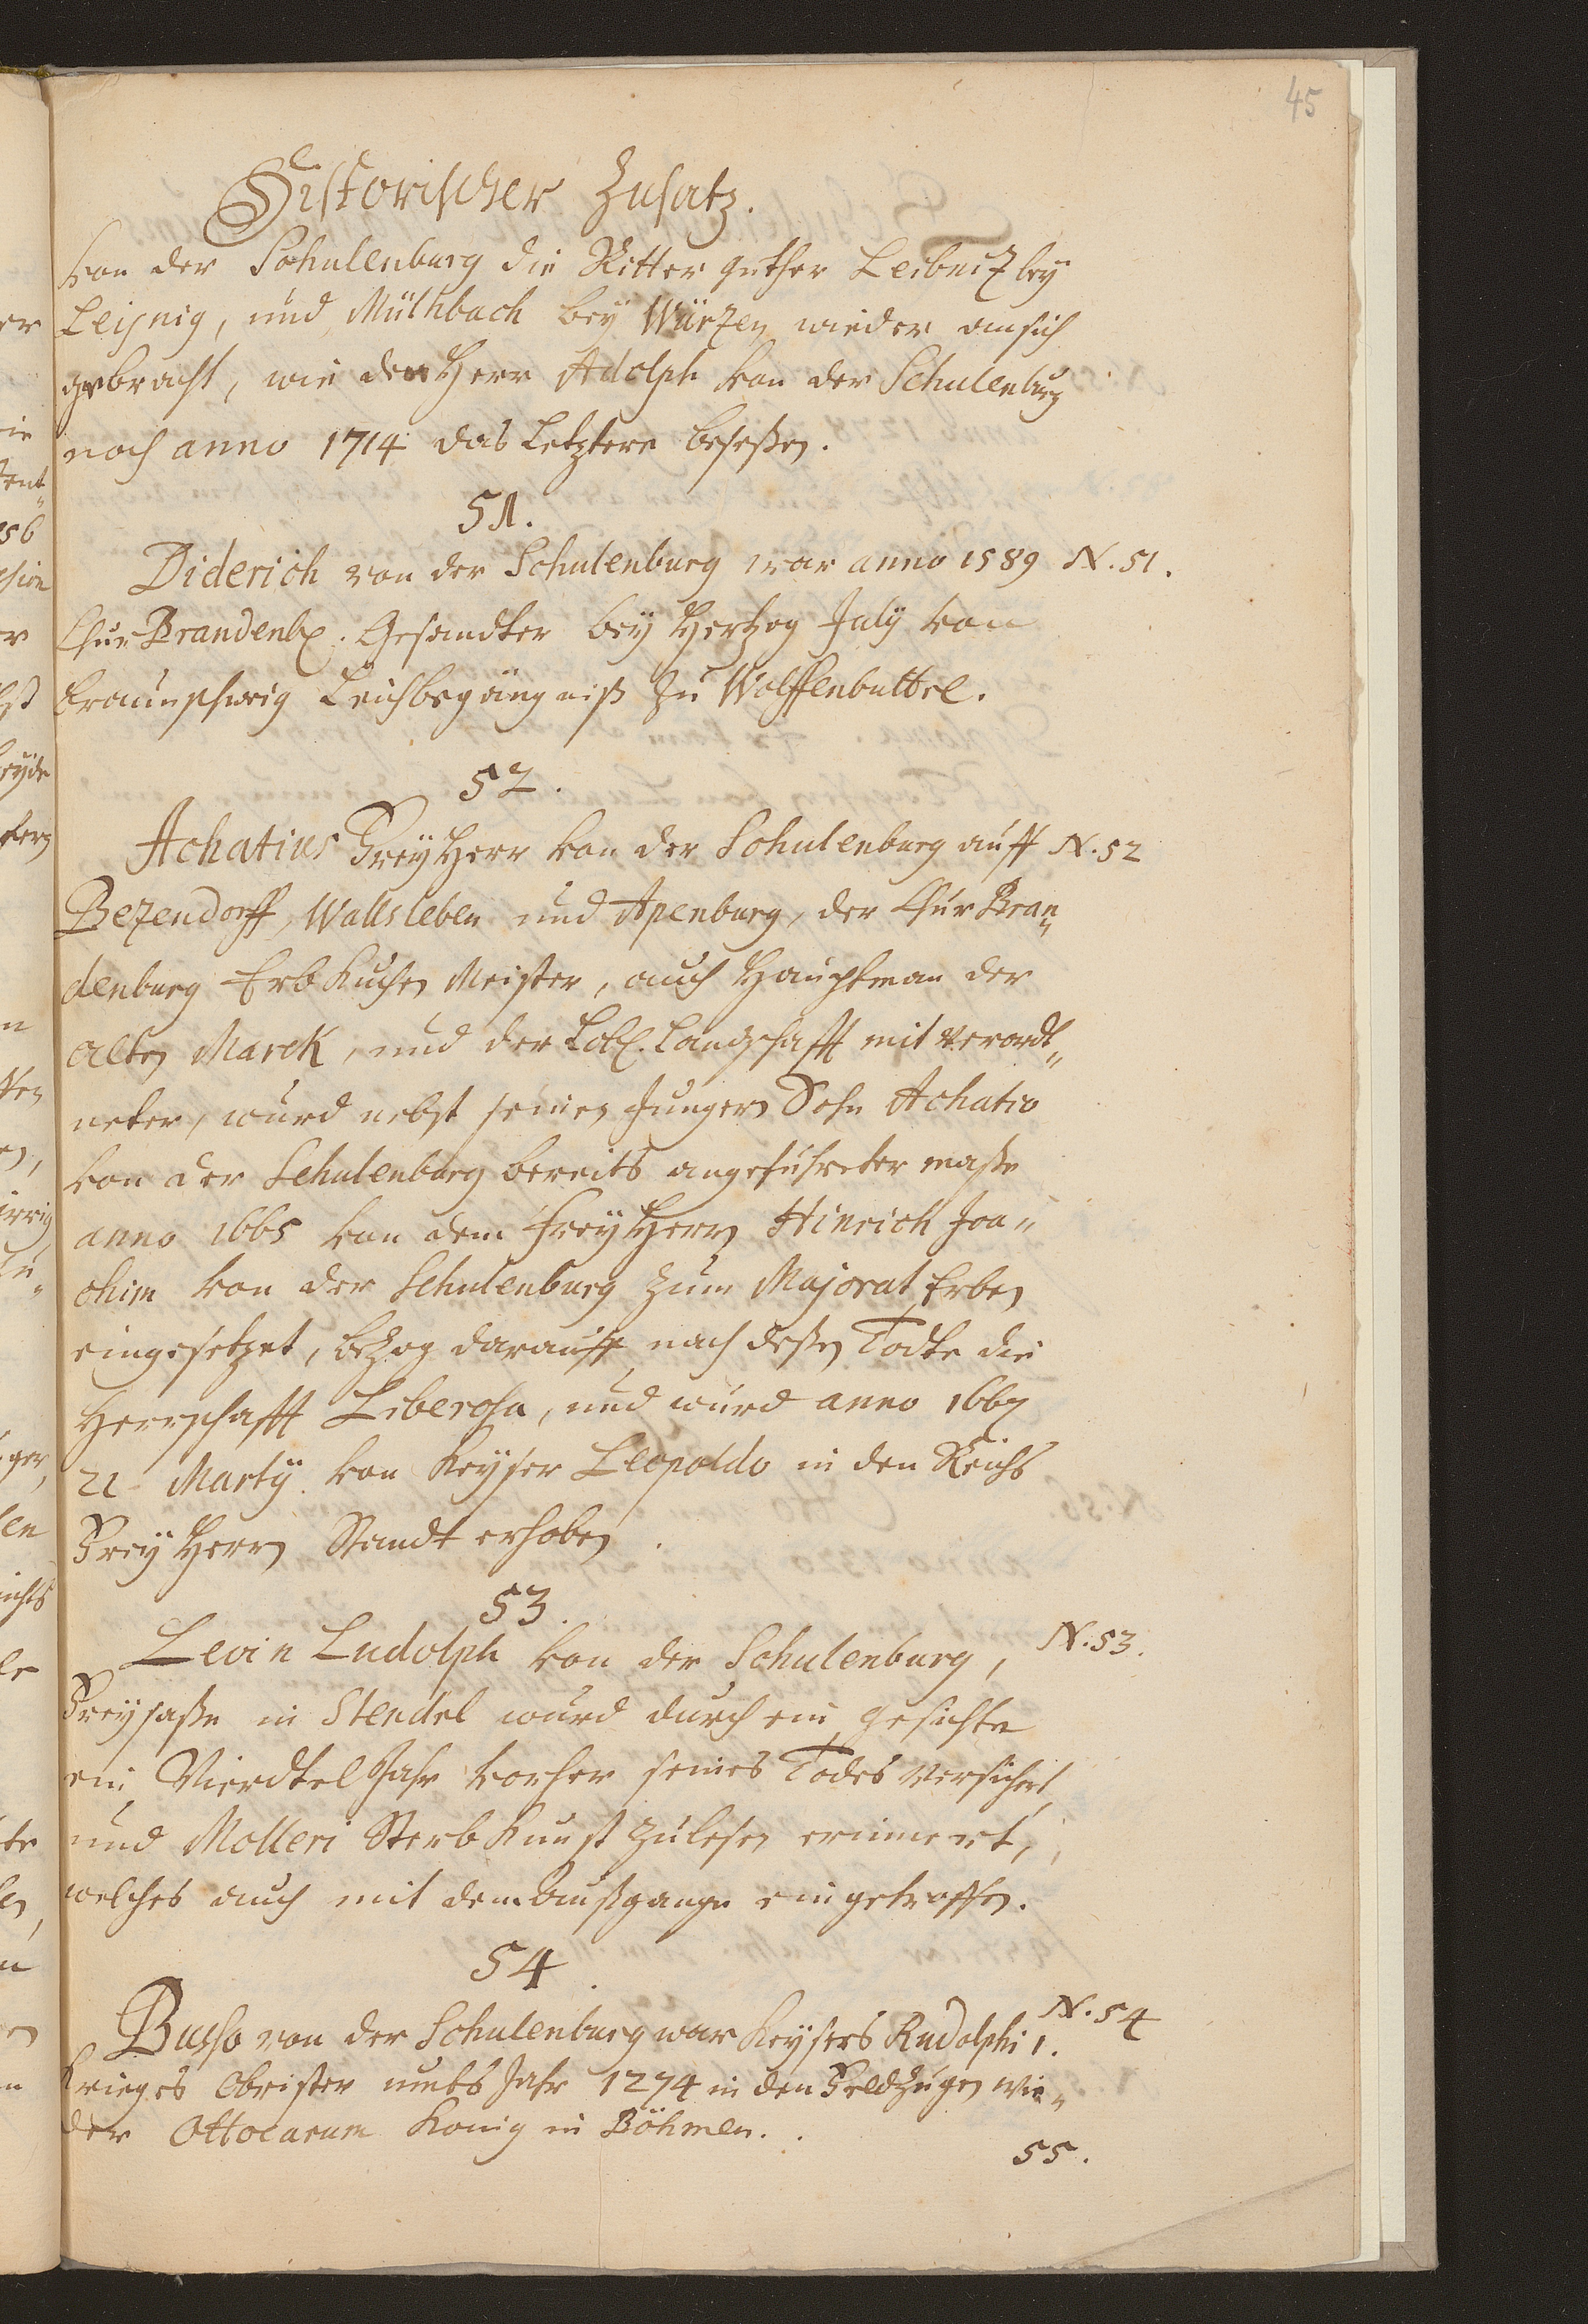 45
Historischer Zusatz.
von der Schulenburg die Ritter güther Leibniz bey
Leisnig, und Mülhbach bey Würzen wieder an sich
gebracht, wie den Herr Adolph von der Schulenburg
noch anno 1714 das Letztere beseßen.
51.
Diderich von der Schulenburg war anno 1589 N. 51.
Chur Brandenb. Gesandter bey Hertzog July von
Braunschweig Leichbegängniß zu Wolffenbuttel.
52.
Achatius Frey Herr von der Schulenburg auff N. 52
Bezendorff, Wallsleben und Apenburg, der Chur Bran„
denburg Erb Kuchen Meister, auch Hauptman der
alten Marck, und der Löbl. Landschafft mit verordt„
neter, wurd nebst seinen Jungern Sohn Achatio
von der Schulenburg bereits angeführter maße
anno 1665 von dem Frey Herrn Hinrich Joa„
chim von der Schulenburg zum Majorat Erben
eingesetzet, bezog darauff nach deßen Todte die
Herrschafft Liberosa, und wurd anno 1667
21 Martÿ von Keyser Leopoldo in den Reichs
Frey Herrn Standt erhoben.
53.
Levin Ludolph von der Schulenburg, N. 53.
Freysaße in Stendel wurd durch ein gesichte
ein Vierdtel Jahr vorher seines Todes versichert,
und Molleri Sterb Kunst zu lesen erinnert,
welches auch mit dem Außgange eingetroffen.
54.
Busso von der Schulenburg war Keysers Rudolphi 1. N. 54
Krieges Obrister umbs Jahr 1274 in den Feldzugen wie„
der Ottocarum König in Böhmen.
55.